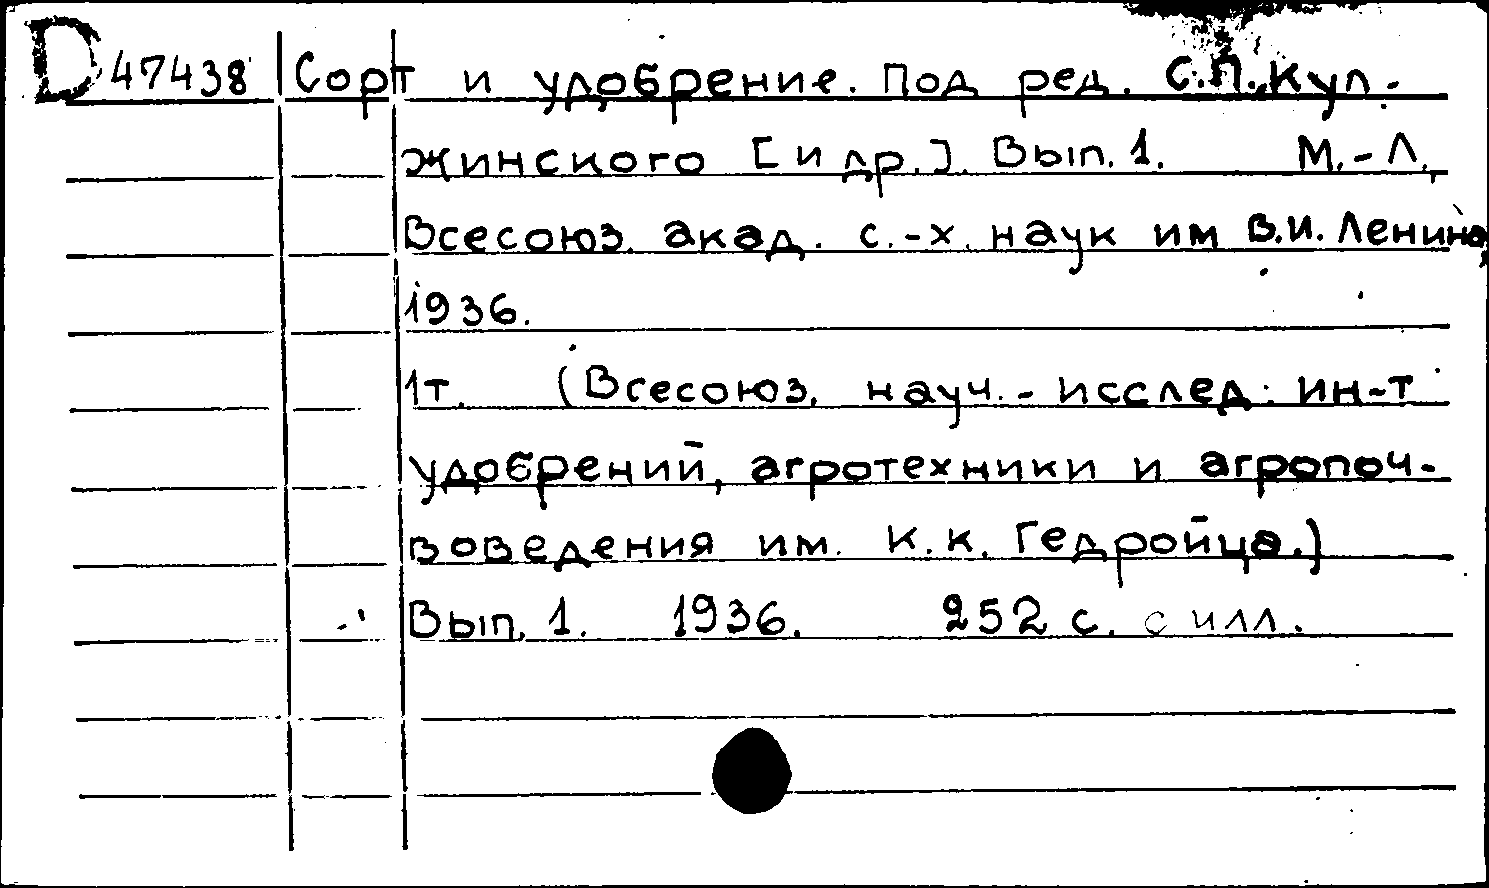 D 47438 Сорт и удобрение. Под ред. С.П. Кул-
жинского [и др.]. Вып. 1. М.-Л.,
Всесоюз. акад. с.-х. наук им В.И. Ленина,
1936.
1т. (Всесоюз. науч.-исслед. ин-т
удобрений, агротехники и агропоч-
воведения им. К.К. Гедройца.)
Вып. 1. 1936. 252 с. с илл.